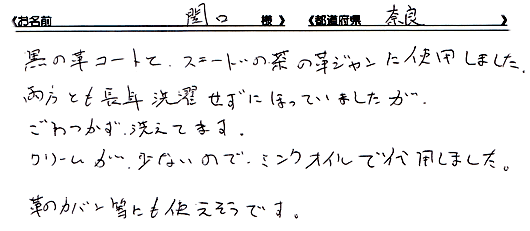 《お名前 関口 様》 《都道府県 奈良 》
黒の革コートと、スエードの茶の革ジャンに使用しました。
両方とも長年洗濯せずにほっていましたが、
ごわつかず、洗えてます。
クリームが、少ないので、ミンクオイルで代用しました。
革のカバン等にも使えそうです。